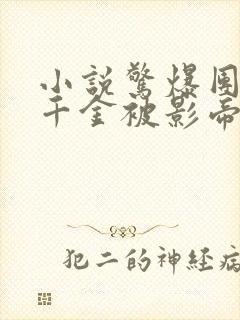 小説驚爆團
千金被影帝
犯二的神経病